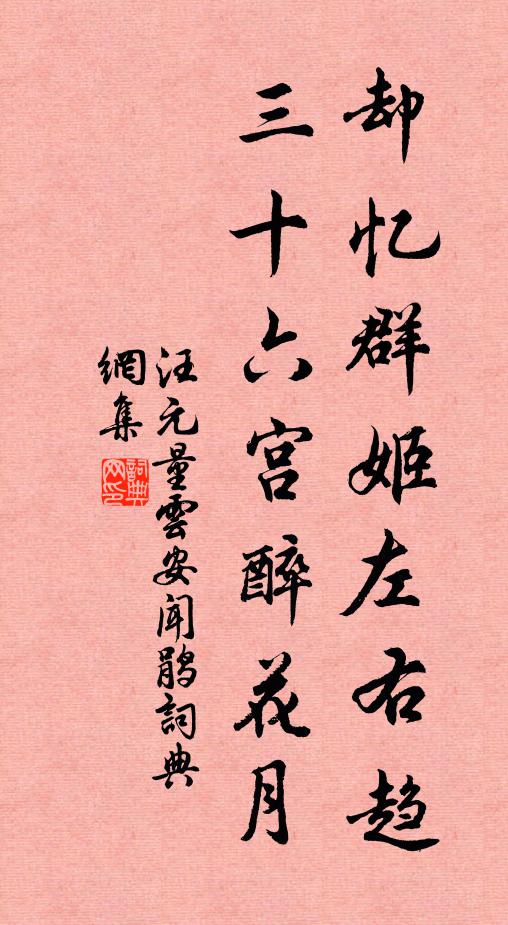 却忆群姬左右趋
三十六宫醉花月
汪元量雲安闻鹃詞典
網集
詞典
网印